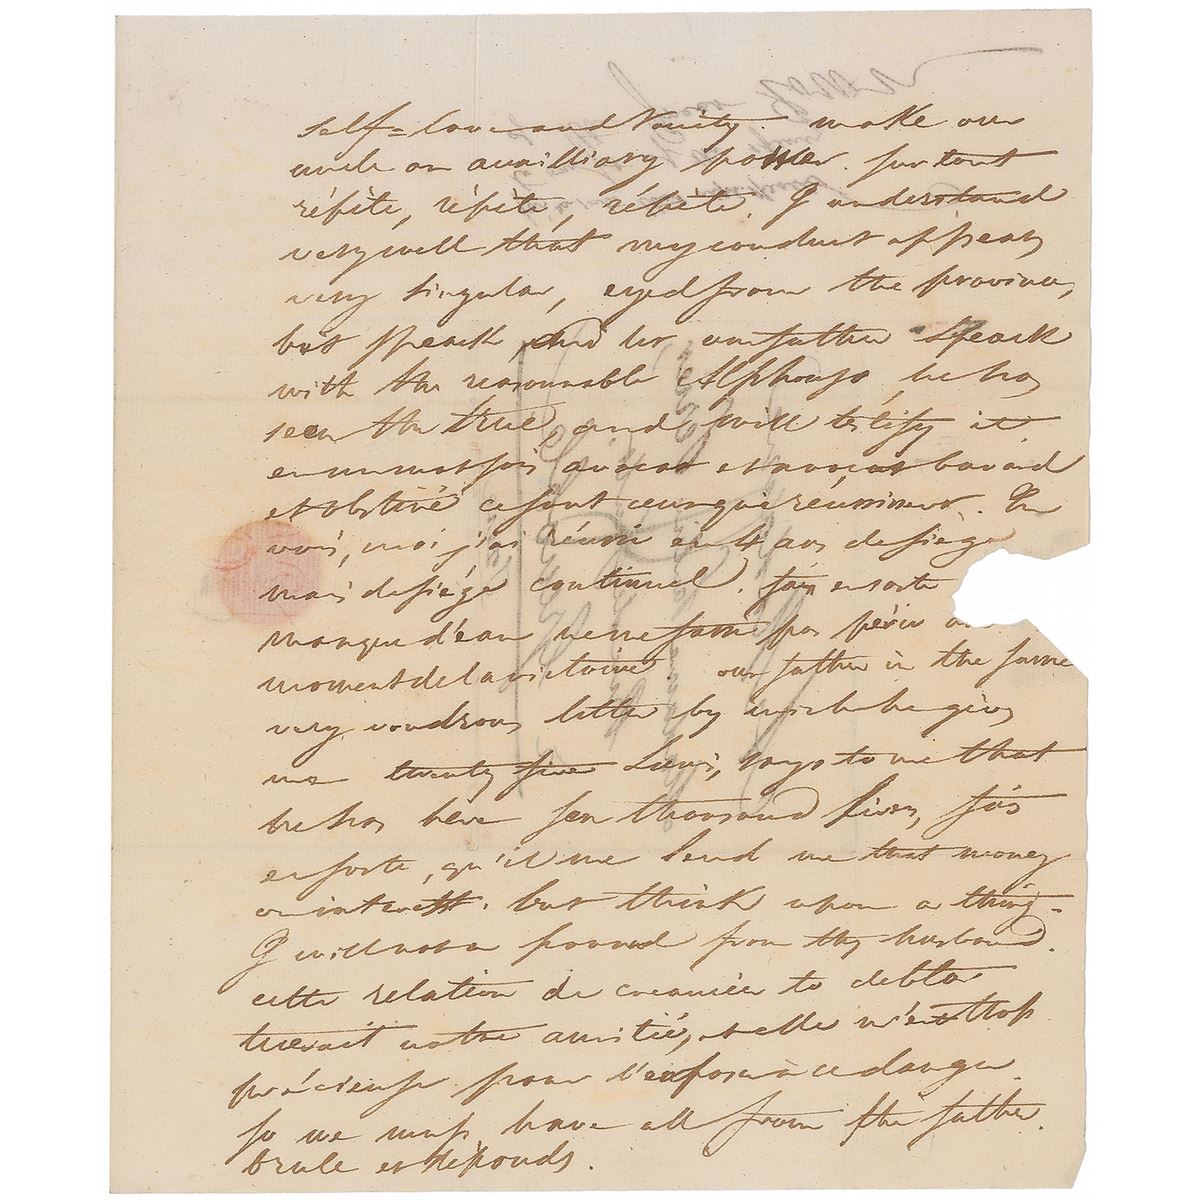 self=love and Vanity. make our
uncle an auxilliary power. surtout
répète, répète, répète. J understand
very well that my conduct appears
very singular, eyed from the province,
but speack, and let our father speack
with the reasonnable Alphonse, he has
seen the true, and will testify it
en un mot sois avocat et avocat bavard
et obstiné ce sont ceux qui réussissent. Tu
vois, moi j'ai réussi en 4 ans de siège
mais de siége continuel. fais en sorte
manque d'eau ne me fasse pas périr au
moment de la victoire. our father in the same
very wondrous letter by wich he gives
me twenty five Louis, says to me that
he has here ten thousand livres, fais
en sorte, qu'il me lend me that money
on interest. but think upon a thing-
J will not a pound from thy husband.
cette relation de creancier to debtor
tuerait notre amitié, et elle m'est trop
précieuse pour l'exposer à ce danger.
so we must have all from the father.
brule et réponds.